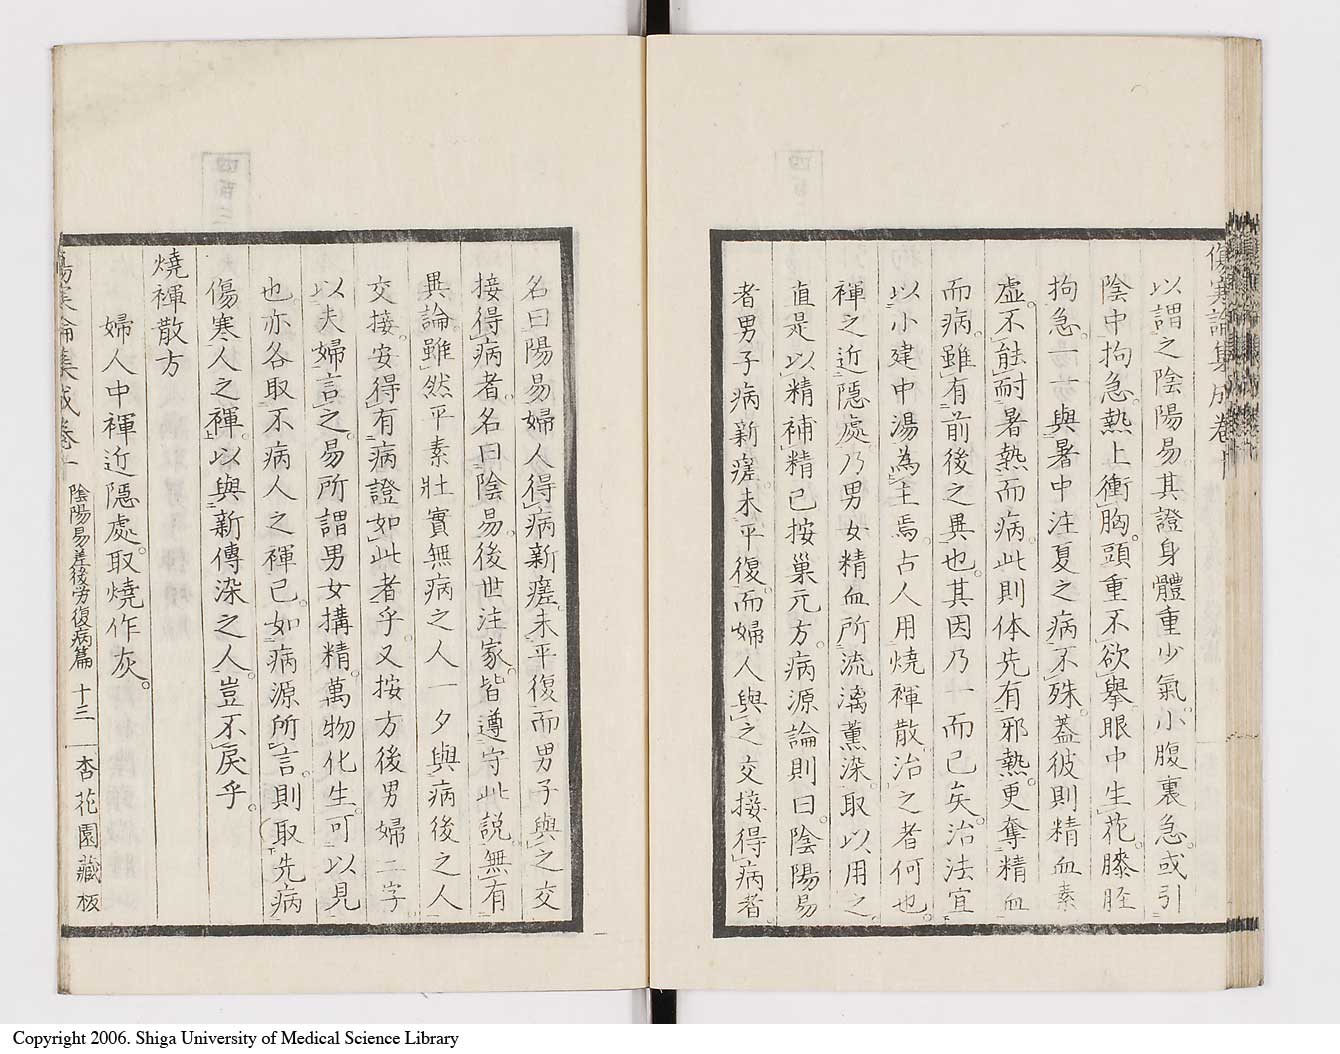 傷寒論集成卷十
以謂之陰陽易其證身體重少氣小腹裏急或引
陰中拘急熱上衝胸頭重不欲擧眼中生花膝脛
拘急一與暑中注夏之病不殊蓋彼則精血素
虛不能耐暑熱而病此則体先有邪熱更奪精血
而病雖有前後之異也其因乃一而已矣治法宜
以小建中湯為主焉古人用燒褌散治之者何也
褌之近隱處乃男女精血所流漓薰染取以用之
直是以精補精已按巢元方病源論則曰陰陽易
者男子病新瘥未平復而婦人與之交接得病者
名曰陽易婦人得病新瘥未平復而男子與之交
接得病者名曰陰易後世注家皆遵守此說無有
異論雖然平素壯實無病之人一夕與病後之人
交接安得有病證如此者乎又按方後男婦二字
以夫婦言之易所謂男女搆精萬物化生可以見
也亦各取不病人之褌已如病源所言則取先病
傷寒人之褌以與新傳染之人豈不戾乎
燒褌散方
婦人中褌近隱處取燒作灰
傷寒論集成卷十 陰陽易差後労復病篇 十三 杏花園藏板
Copyright 2006. Shiga University of Medical Science Library